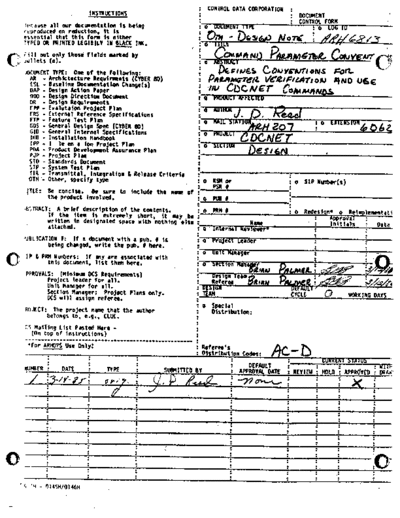 INSTRUCTIONS
Because all our documentation is being
reproduced on reduction, it is
essential that this form is either
TYPED OR PRINTED LEGIBLY IN BLACK INK.
Fill out only those fields marked by
bullets (o).
DOCUMENT TYPE: One of the following:
AR - Architecture Requirements (CYBER 80)
ESL - Baseline Documentation Change(s)
DAP - Design Action Paper
DDD - Design Direction Document
DR - Design Requirements
EPP - Evaluation Project Plan
ERS - External Reference Specifications
FTP - Feature Test Plan
GDS - General Design Spec (CYBER 80)
GID - General Internal Specifications
IHB - Installation Handbook
PDA - Product Development Assurance Plan
PJP - Project Plan
STD - Standards Document
STP - System Test Plan
TIR - Transmittal, Integration & Release Criteria
OTH - Other, specify type
TITLE: Be concise. Be sure to include the name of
the product involved.
ABSTRACT: A brief description of the contents.
If the item is extremely short, it may be
written in designated space with nothing else
attached.
PUBLICATION #: If a document with a pub. # is
being changed, write the pub. # here.
SIP & PRM Numbers: If any are associated with
this document, list them here.
APPROVALS: (Minimum DCS Requirements)
Project leader for all.
Unit Manager for all.
Section Manager: Project Plans only.
DCS will assign referee.
PROJECT: The project name that the author
belongs to, e.g., CLUE.
DCS Mailing List Pasted Here -
(On top of instructions)
*For ARHOPS Use Only!
CONTROL DATA CORPORATION
DOCUMENT
CONTROL FORM
o DOCUMENT TYPE
OTH - DESIGN NOTE
o LOG ID
ARH6813
o TITLE
COMMAND PARAMETER CONVENT
o ABSTRACT
DEFINES CONVENTIONS FOR
PARAMETER VERIFICATION AND USE
IN CDCNET COMMANDS
o PRODUCT AFFECTED
o AUTHOR
J. D. Reed
o MAIL STATION
ARH 207
o EXTENSION
6062
o PROJECT
CDCNET
o SECTION
DESIGN
o RSM or
PSR #
o SIP Number(s)
o PUB #
o PRM #
o Redesign* o Reimplementati
Name
Approval
Initials
Date
o Internal Reviewer*
o Project Leader
o Unit Manager
o Section Manager
BRIAN PALMER
Design Team
Referee
BRIAN PALMER
DESIGN
TEAM
DEFAULT
CYCLE
0
WORKING DAYS
o Special
Distribution:
Referee's
Distribution Codes:
AC-D
CURRENT STATUS
NUMBER
DATE
TYPE
SUBMITTED BY
DEFAULT
APPROVAL DATE
REVIEW
HOLD
APPROVED
WITH
DRAW
1
3-14-85
J. D. Reed
none
X
0145H/0146H